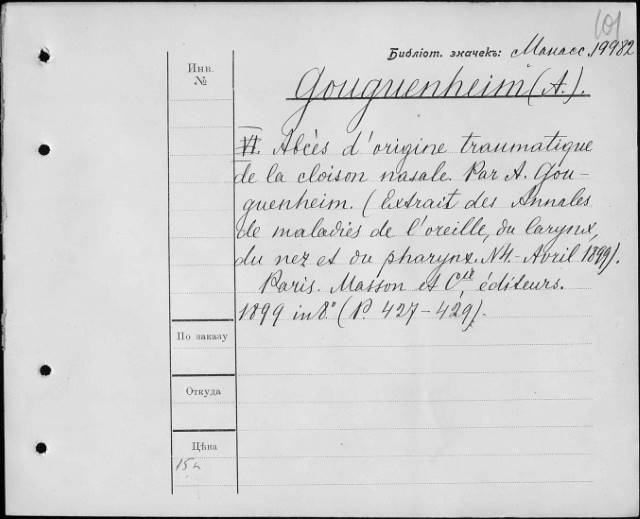 101
Библіот. значекъ: Манасс. 19982
Инв.
№
Gouguenheim (A.).
VI. Abcès d'origine traumatique
de la cloison nasale. Par A. Gou-
guenheim. (Extrait des Annales
de maladies de l'oreille, du larynx,
du nez et du pharynx. N4.- Avril 1899).
Paris. Masson et Cie, éditeurs.
1899 in 8.° (P. 427-429).
По заказу
Откуда
Цѣна
15